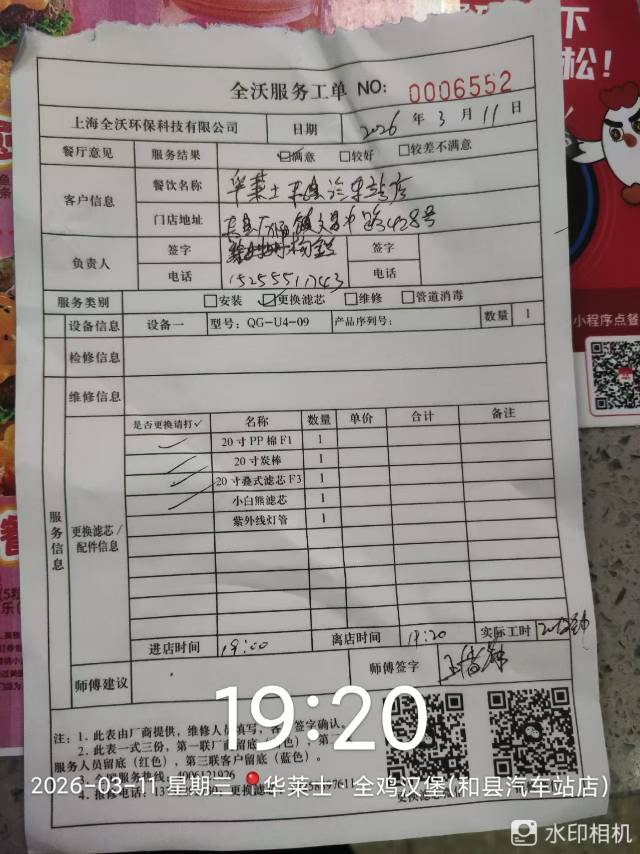 下
松！
全沃服务工单 NO: 0006552
上海全沃环保科技有限公司 日期 2026 年 3 月 11 日
餐厅意见 服务结果 ☑满意 □较好 □较差不满意
客户信息 餐饮名称 华莱士 和县汽车站店
门店地址 428号
负责人 签字 签字
电话 15255511743 电话
服务类别 □安装 ☑更换滤芯 □维修 □管道消毒
设备信息 设备一 型号：QG-U4-09 产品序列号： 数量 1
检修信息
维修信息
服务信息 更换滤芯/配件信息
是否更换请打✓ 名称 数量 单价 合计 备注
✓ 20寸PP棉F1 1
✓ 20寸炭棒 1
✓ 20寸叠式滤芯F3 1
✓ 小白熊滤芯 1
紫外线灯管 1
进店时间 19:00 离店时间 19:20 实际工时 20分钟
师傅建议 师傅签字
19:20
注：1. 此表由厂商提供，维修人员填写，客户签字确认。
2. 此表一式三份，第一联厂商留底
服务人员留底（红色），第三联客户留底（蓝色）。
4006121926
4. 报修电话：
2026-03-11 星期三 华莱士·全鸡汉堡(和县汽车站店)
小程序点餐
水印相机